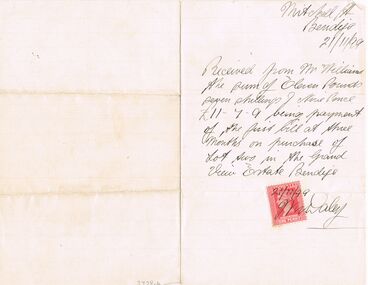 Mitchell St
Bendigo
21/11/29
Received from Mr Williams
the sum of Eleven Pounds
seven shillings & Nine Pence
£11-7-9 being payment
of the first bill at three
Months on purchase of
Lot two in the Grand
View Estate Bendigo
Daley